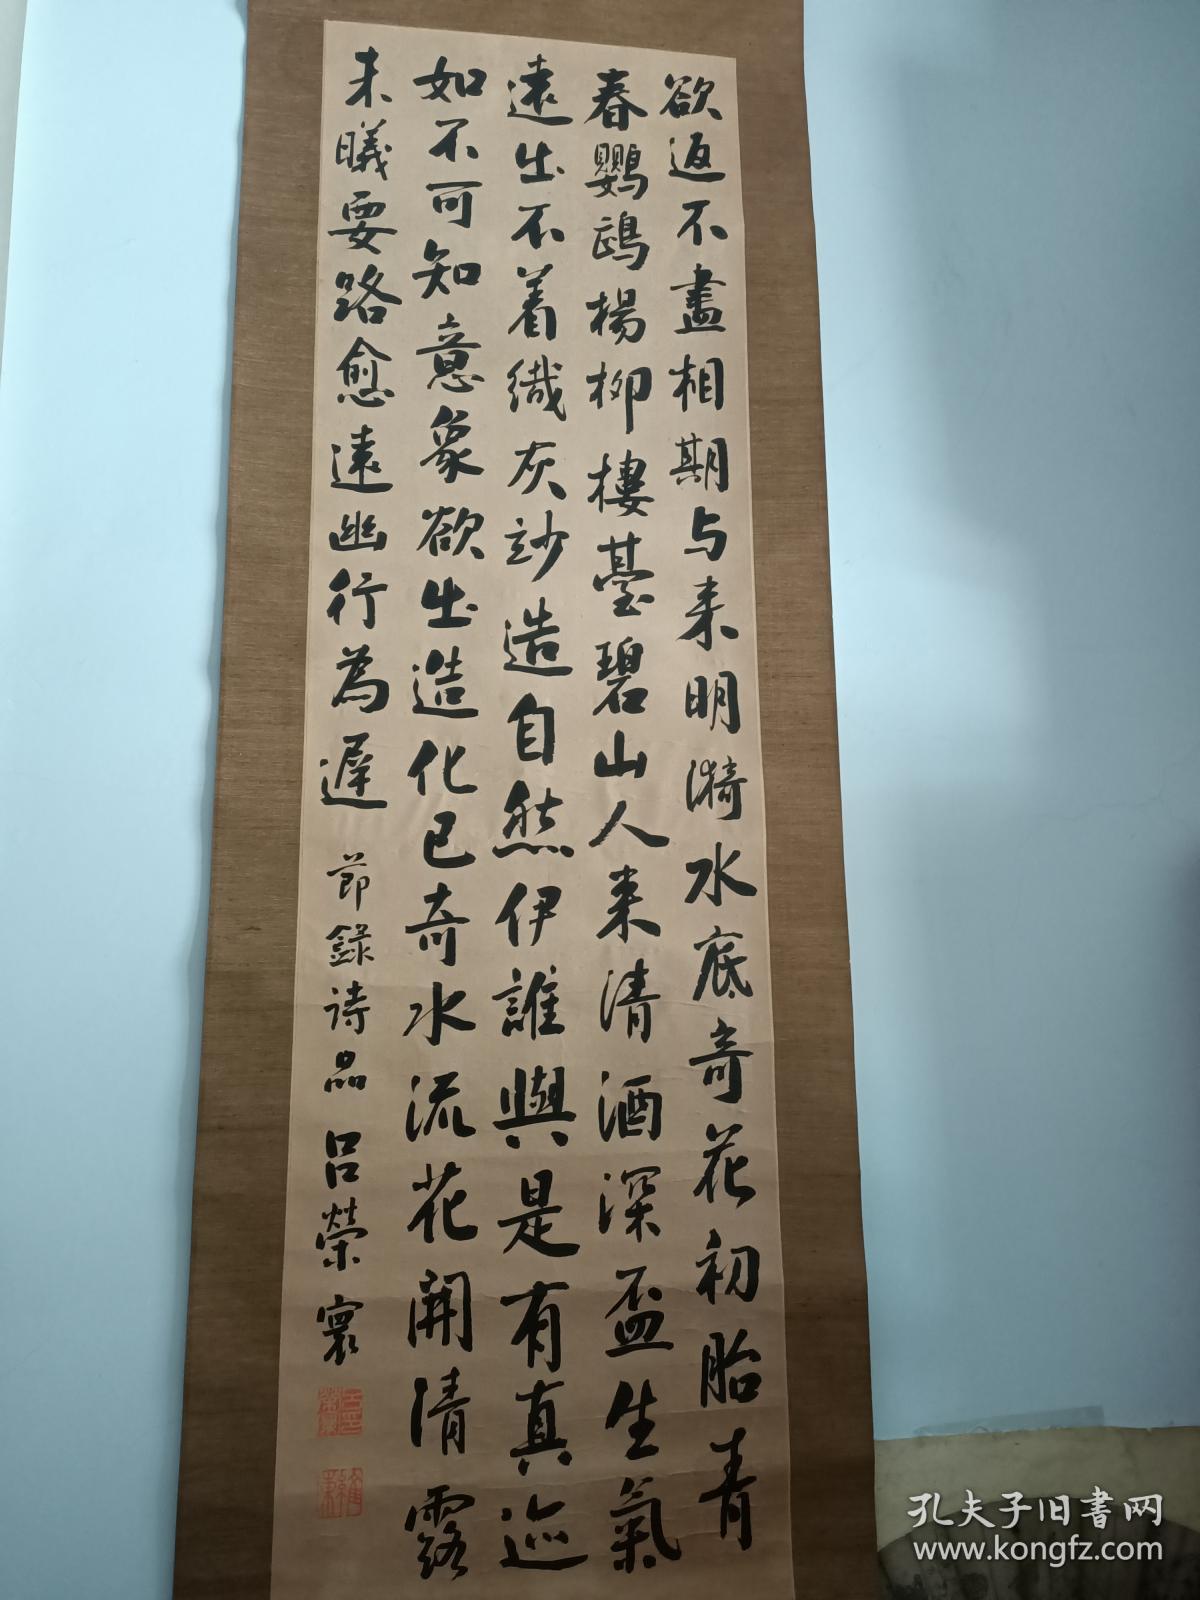 欲返不盡相期与来明漪水底奇花初胎青
春鸚鵡楊柳樓臺碧山人来清酒深盃生氣
遠出不着織灰玅造自然伊誰與是有真迹
如不可知意象欲出造化已奇水流花開清露
未曦要路愈遠幽行為遲
節錄詩品 呂榮寰
孔夫子旧书网
www.kongfz.com